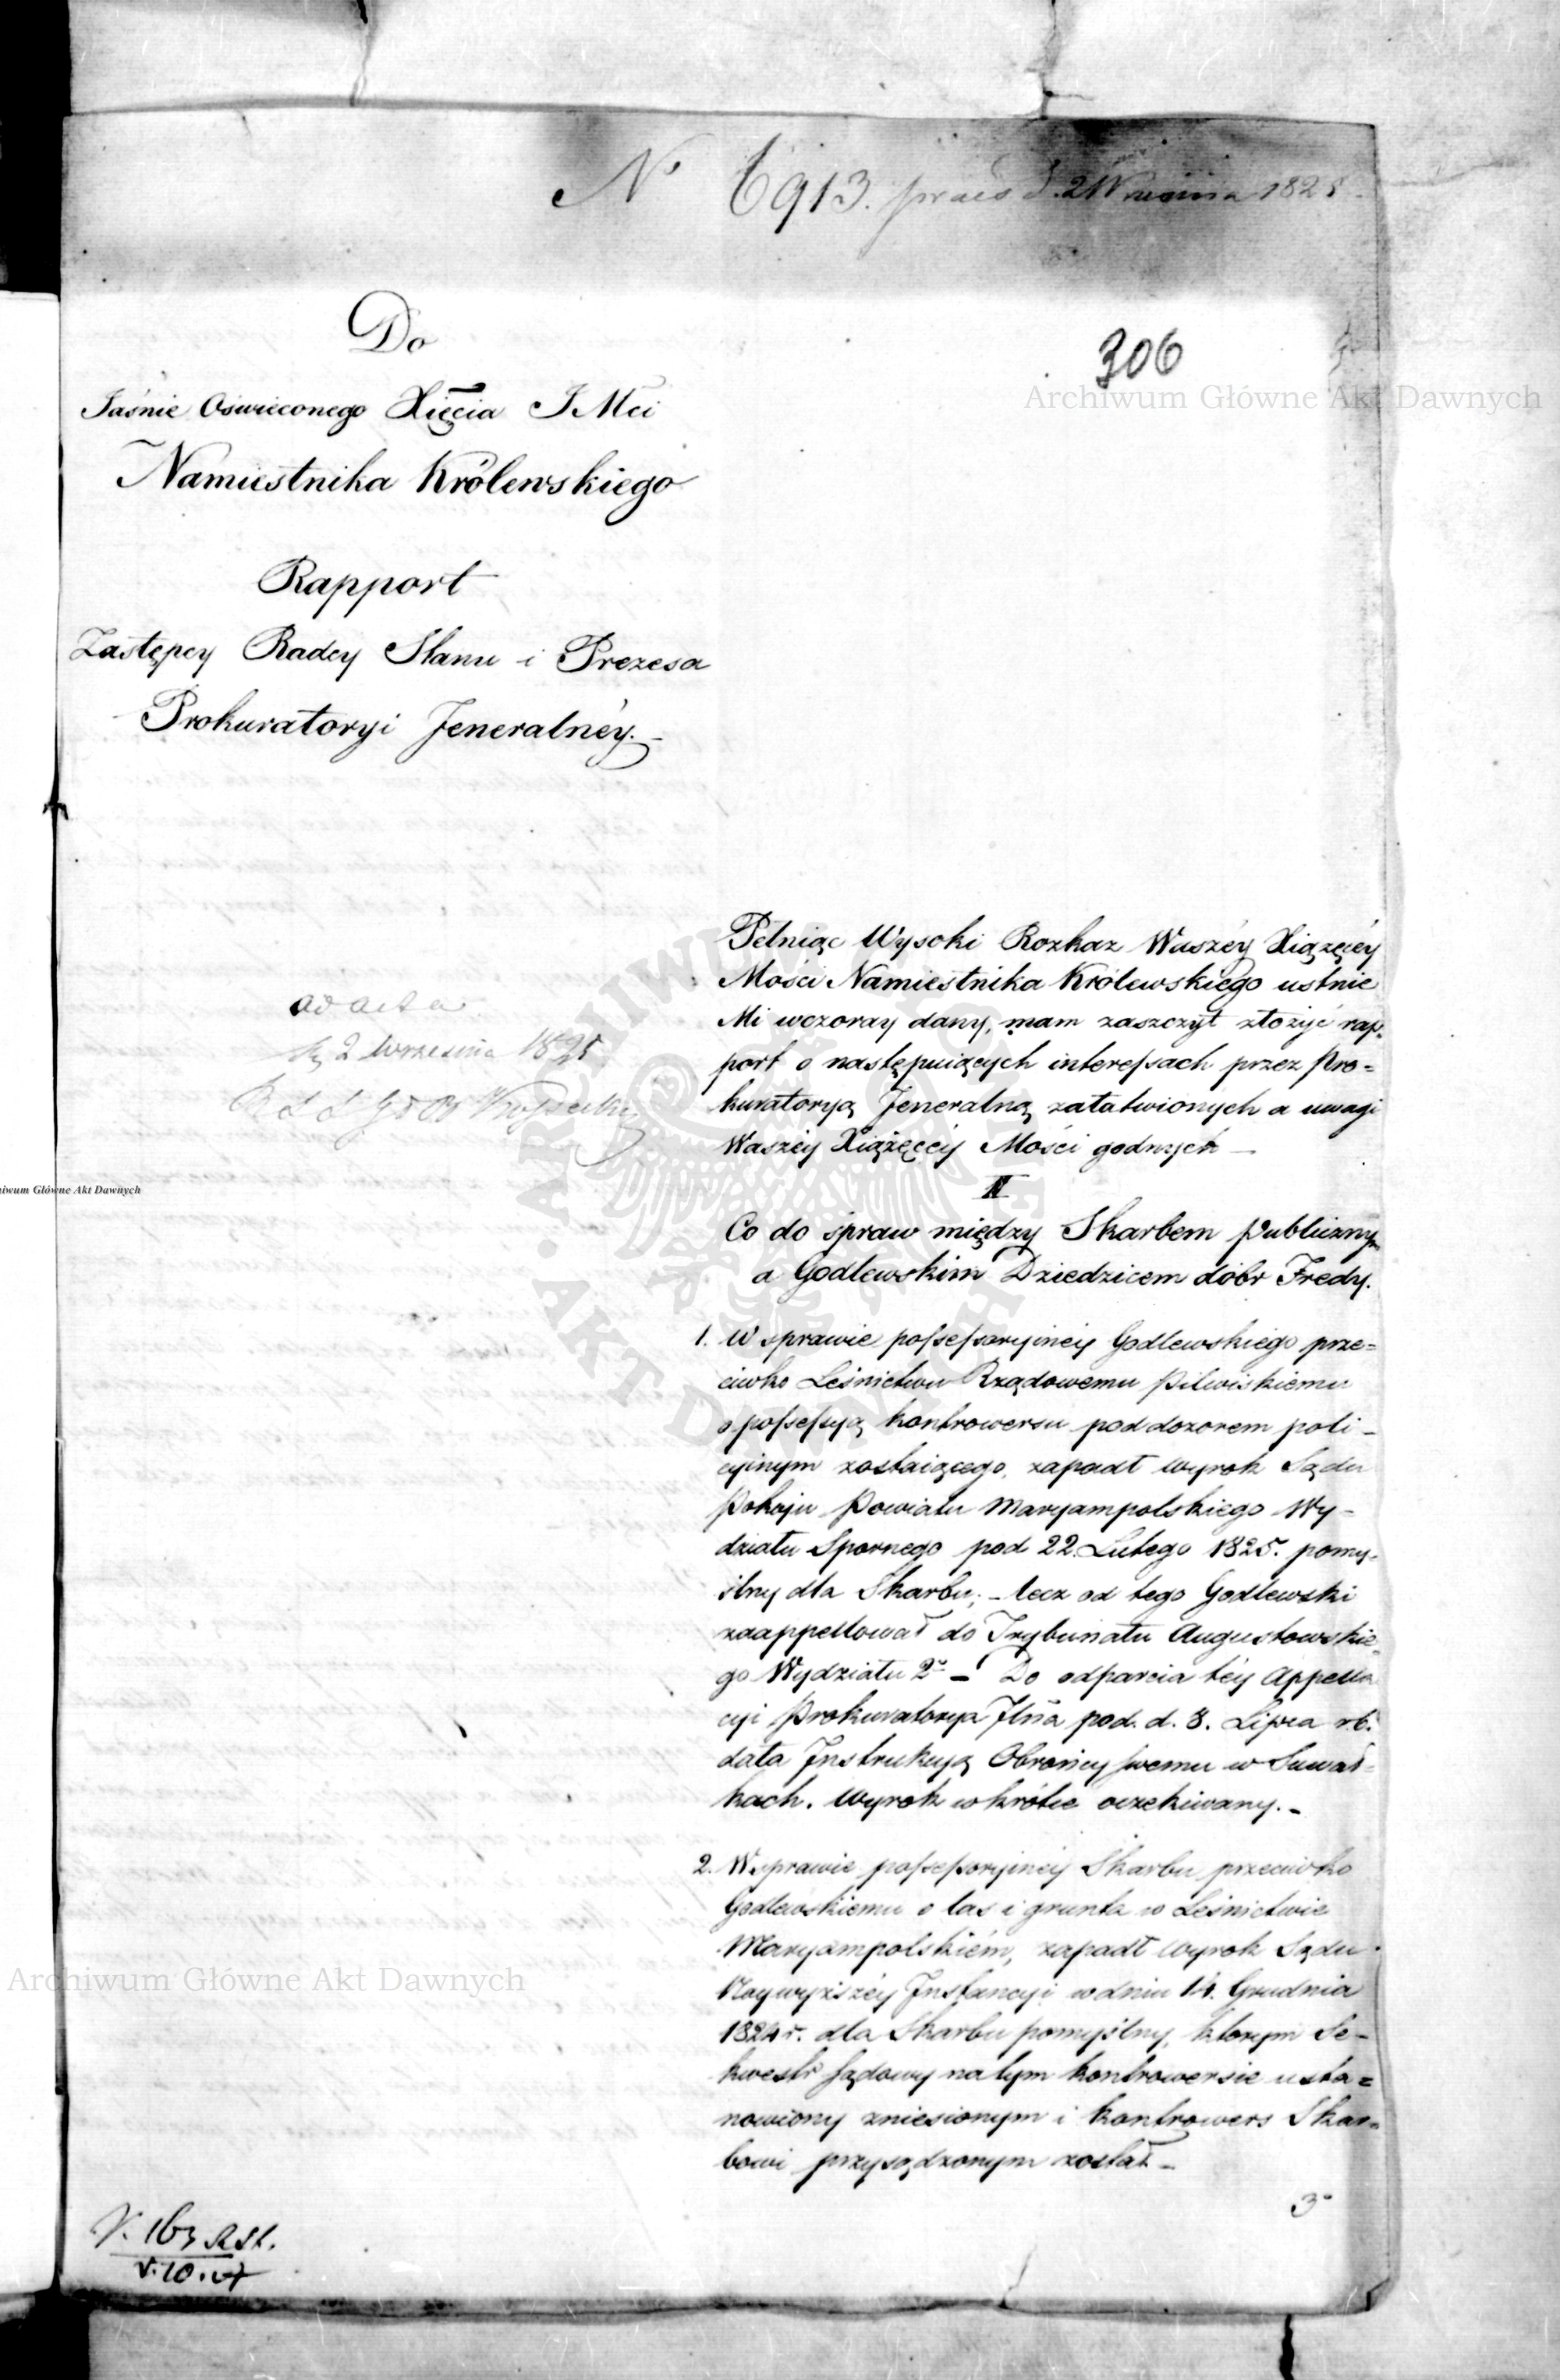 N 6913. praes d. 2 Września 1825
306
Do
Jaśnie Oświeconego Xięcia J Mci
Namiestnika Królewskiego
Rapport
Zastępcy Radcy Stanu i Prezesa
Prokuratoryi Jeneralnéy.
ad acta
2 Września 1825
Pełniąc Wysoki Rozkaz Waszéy Xiążęcéy
Mości Namiestnika Królewskiego ustnie
Mi wczoray dany, mam zaszczyt złożyć rap-
port o następuiących interessach przez Pro=
kuratoryą Jeneralną załatwionych a uwagi
Waszéy Xiążęcéy Mości godnych —
Co do spraw między Skarbem publicznym
a Godlewskim Dziedzicem dóbr Fredy.
1. W sprawie possessoryinéy Godlewskiego prze=
ciwko Leśnictwu Rządowemu Pilwiskiemu
o possessyą kontrowersu pod dozorem poli-
cyinym zostaiącego, zapadł wyrok Sądu
Pokoju Powiatu Maryampolskiego Wy-
działu Spornego pod 22. Lutego 1825. pomy-
ślny dla Skarbu; – lecz od tego Godlewski
zaappellował do Trybunału Augustowskie-
go Wydziału 2º – Do odparcia téy Appella
cyi Prokuratorya Jlna pod. d. 8. Lipca r.b.
dała Instrukcyą Obrońcy swemu w Suwał-
kach. Wyrok wkrótce oczekiwany. –
2. W sprawie possessoryinéy Skarbu przeciwko
Godlewskiemu o las i grunta w Leśnictwie
Maryampolskiém, zapadł wyrok Sądu
Naywyższéy Instancyi w dniu 14. Grudnia
1824 r. dla Skarbu pomyślny, którym Se-
kwestr sądowy na tym kontrowersie usta=
nowiony zniesionym i kontrowers Skar=
bowi przysądzonym został –
3º
Archiwum Główne Akt Dawnych
Archiwum Główne Akt Dawnych
hiwum Główne Akt Dawnych
ARCHIWUM GŁÓWNE AKT DAWNYCH